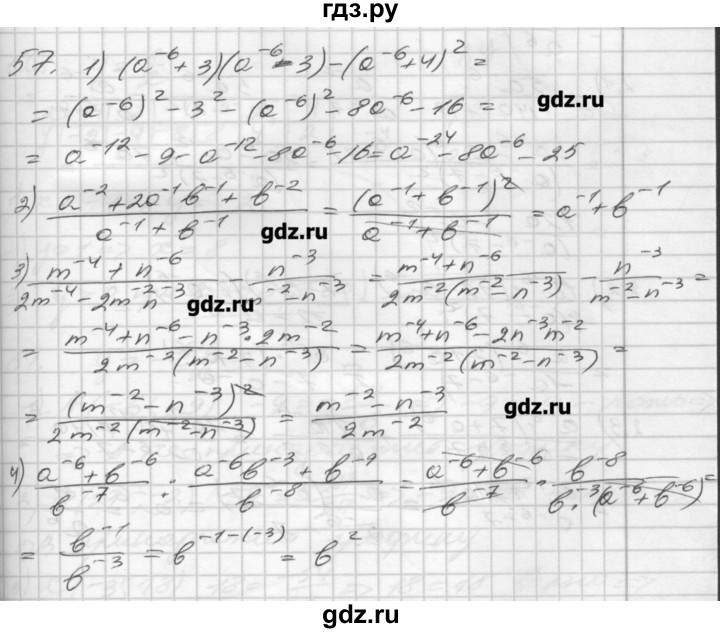 гдз.ру
57. 1) (a⁻⁶ + 3)(a⁻⁶ - 3) - (a⁻⁶ + 4)² =
= (a⁻⁶)² - 3² - (a⁻⁶)² - 8a⁻⁶ - 16 =
gdz.ru
= a⁻¹² - 9 - a⁻¹² - 8a⁻⁶ - 16 = a⁻²⁴ - 8a⁻⁶ - 25
2) (a⁻² + 2a⁻¹b⁻¹ + b⁻²)/(a⁻¹ + b⁻¹) = (a⁻¹ + b⁻¹)²/(a⁻¹ + b⁻¹) = a⁻¹ + b⁻¹
gdz.ru
3) (m⁻⁴ + n⁻⁶)/(2m⁻⁴ - 2m⁻²n⁻³) n⁻³/(m⁻² - n⁻³) = (m⁻⁴ + n⁻⁶)/(2m⁻²(m⁻² - n⁻³)) - n⁻³/(m⁻² - n⁻³) =
gdz.ru
= (m⁻⁴ + n⁻⁶ - n⁻³ · 2m⁻²)/(2m⁻³(m⁻² - n⁻³)) = (m⁻⁴ + n⁻⁶ - 2n⁻³m⁻²)/(2m⁻²(m⁻² - n⁻³)) =
= (m⁻² - n⁻³)²/(2m⁻²(m⁻² - n⁻³)) = (m⁻² - n⁻³)/(2m⁻²)
gdz.ru
4) (a⁻⁶ + b⁻⁶)/b⁻⁷ : (a⁻⁶b⁻³ + b⁻⁹)/b⁻⁸ = (a⁻⁶ + b⁻⁶)/b⁻⁷ · b⁻⁸/(b·⁻³(a⁻⁶ + b⁻⁶)) =
= b⁻¹/b⁻³ = b⁻¹⁻⁽⁻³⁾ = b²
gdz.ru